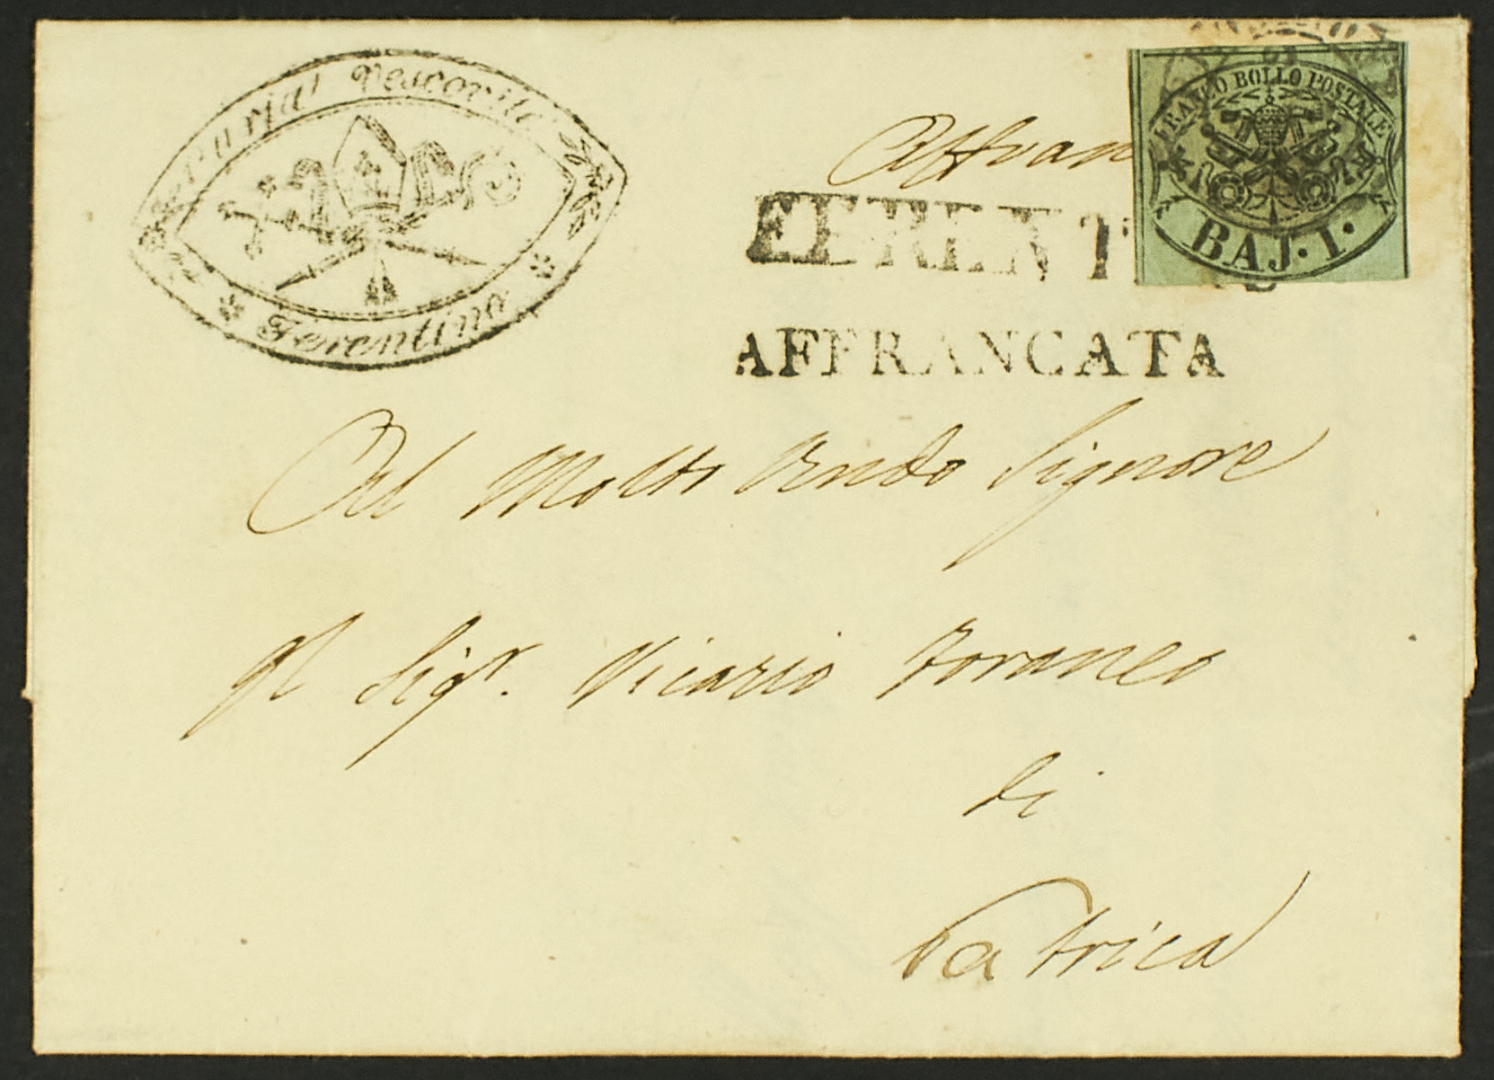 Curia Vescovile
Ferentina
FRANCO BOLLO POSTALE
BAJ. 1.
Affran
FERENT
AFFRANCATA
Al Molto Rndo Signore
Il Sigr. Vicario Foraneo
di
Patrica